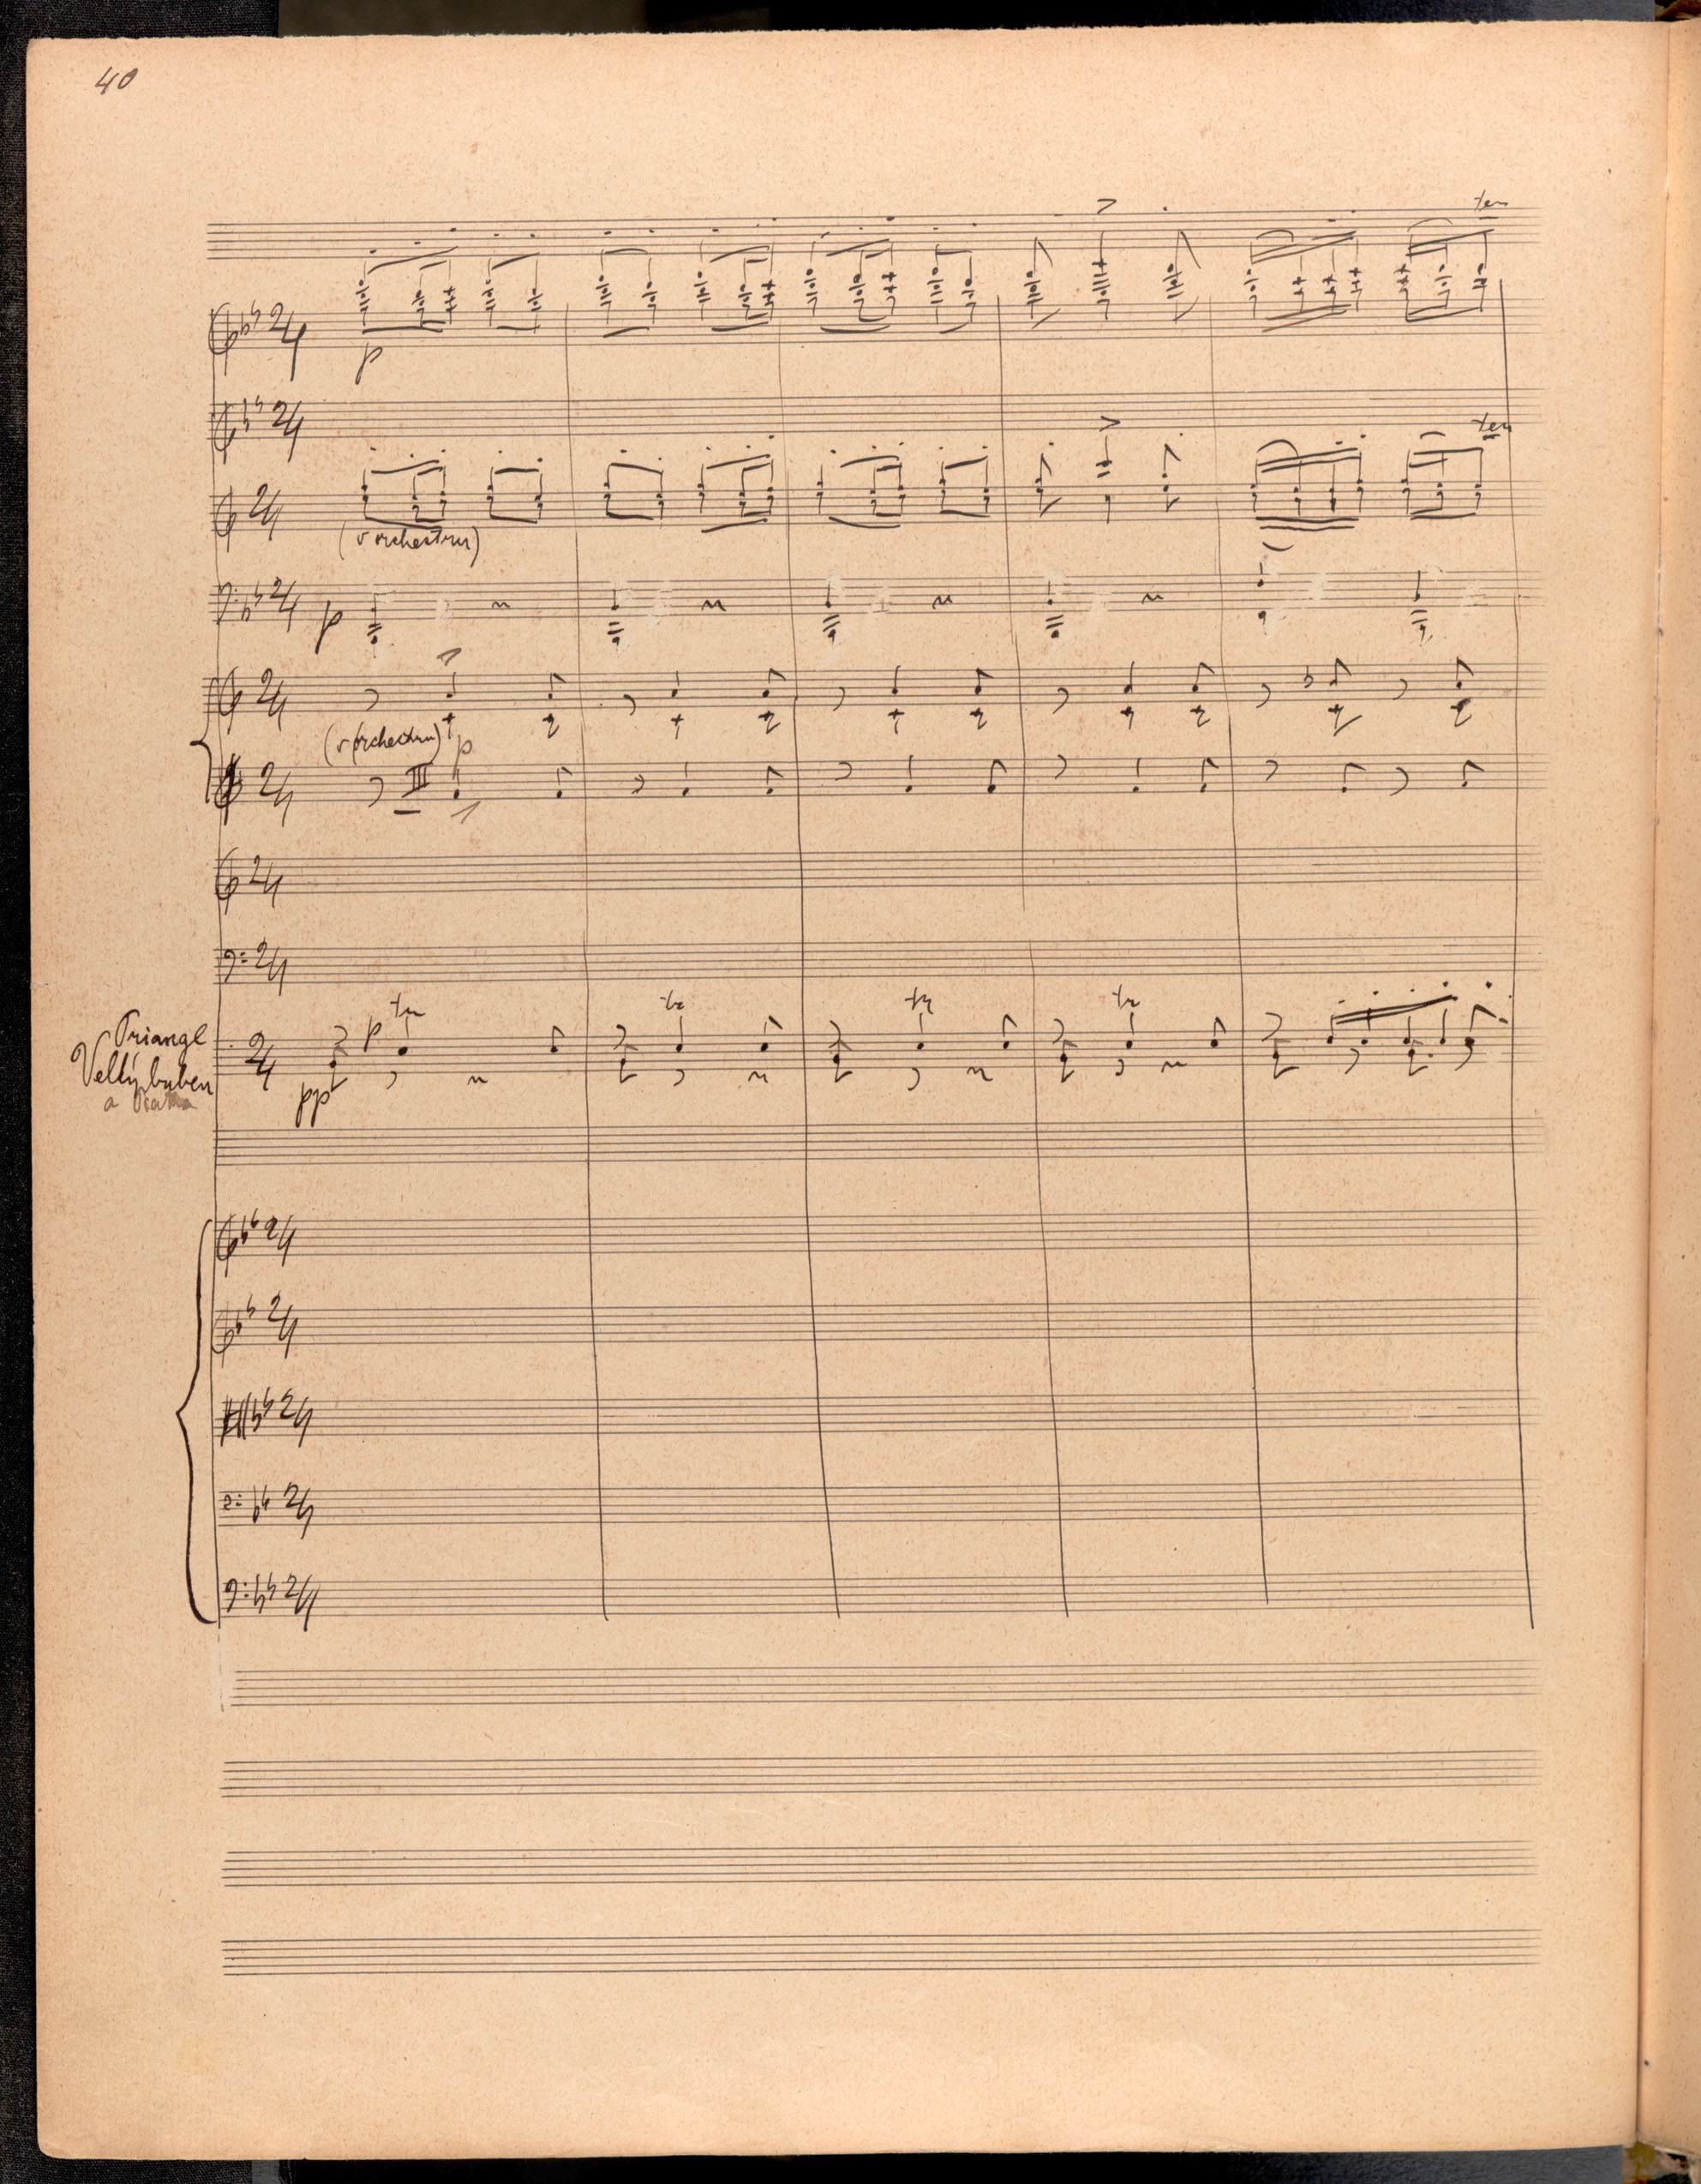 40
ten
p
ten
(v orchestru)
p
(v orchestru)
p
III
tr tr tr tr
Triangl
p
Velký buben
a
pp